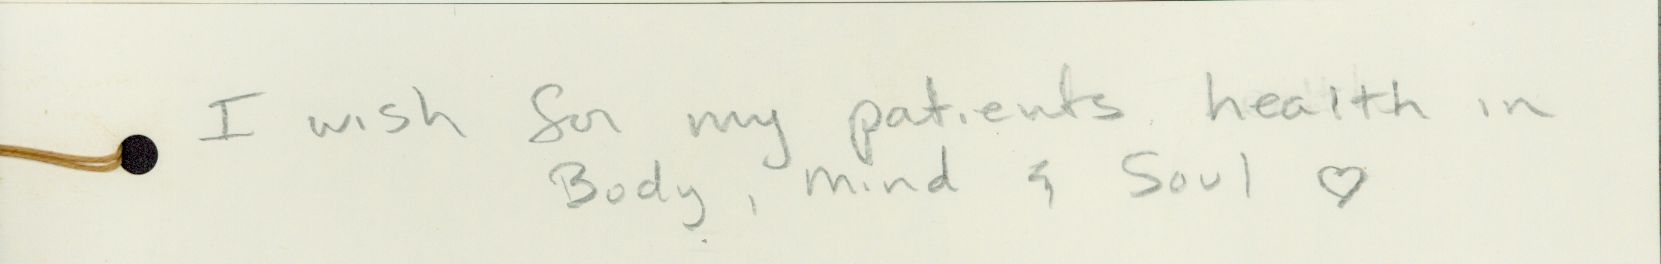 I wish for my patients health in
Body, mind & Soul ♡